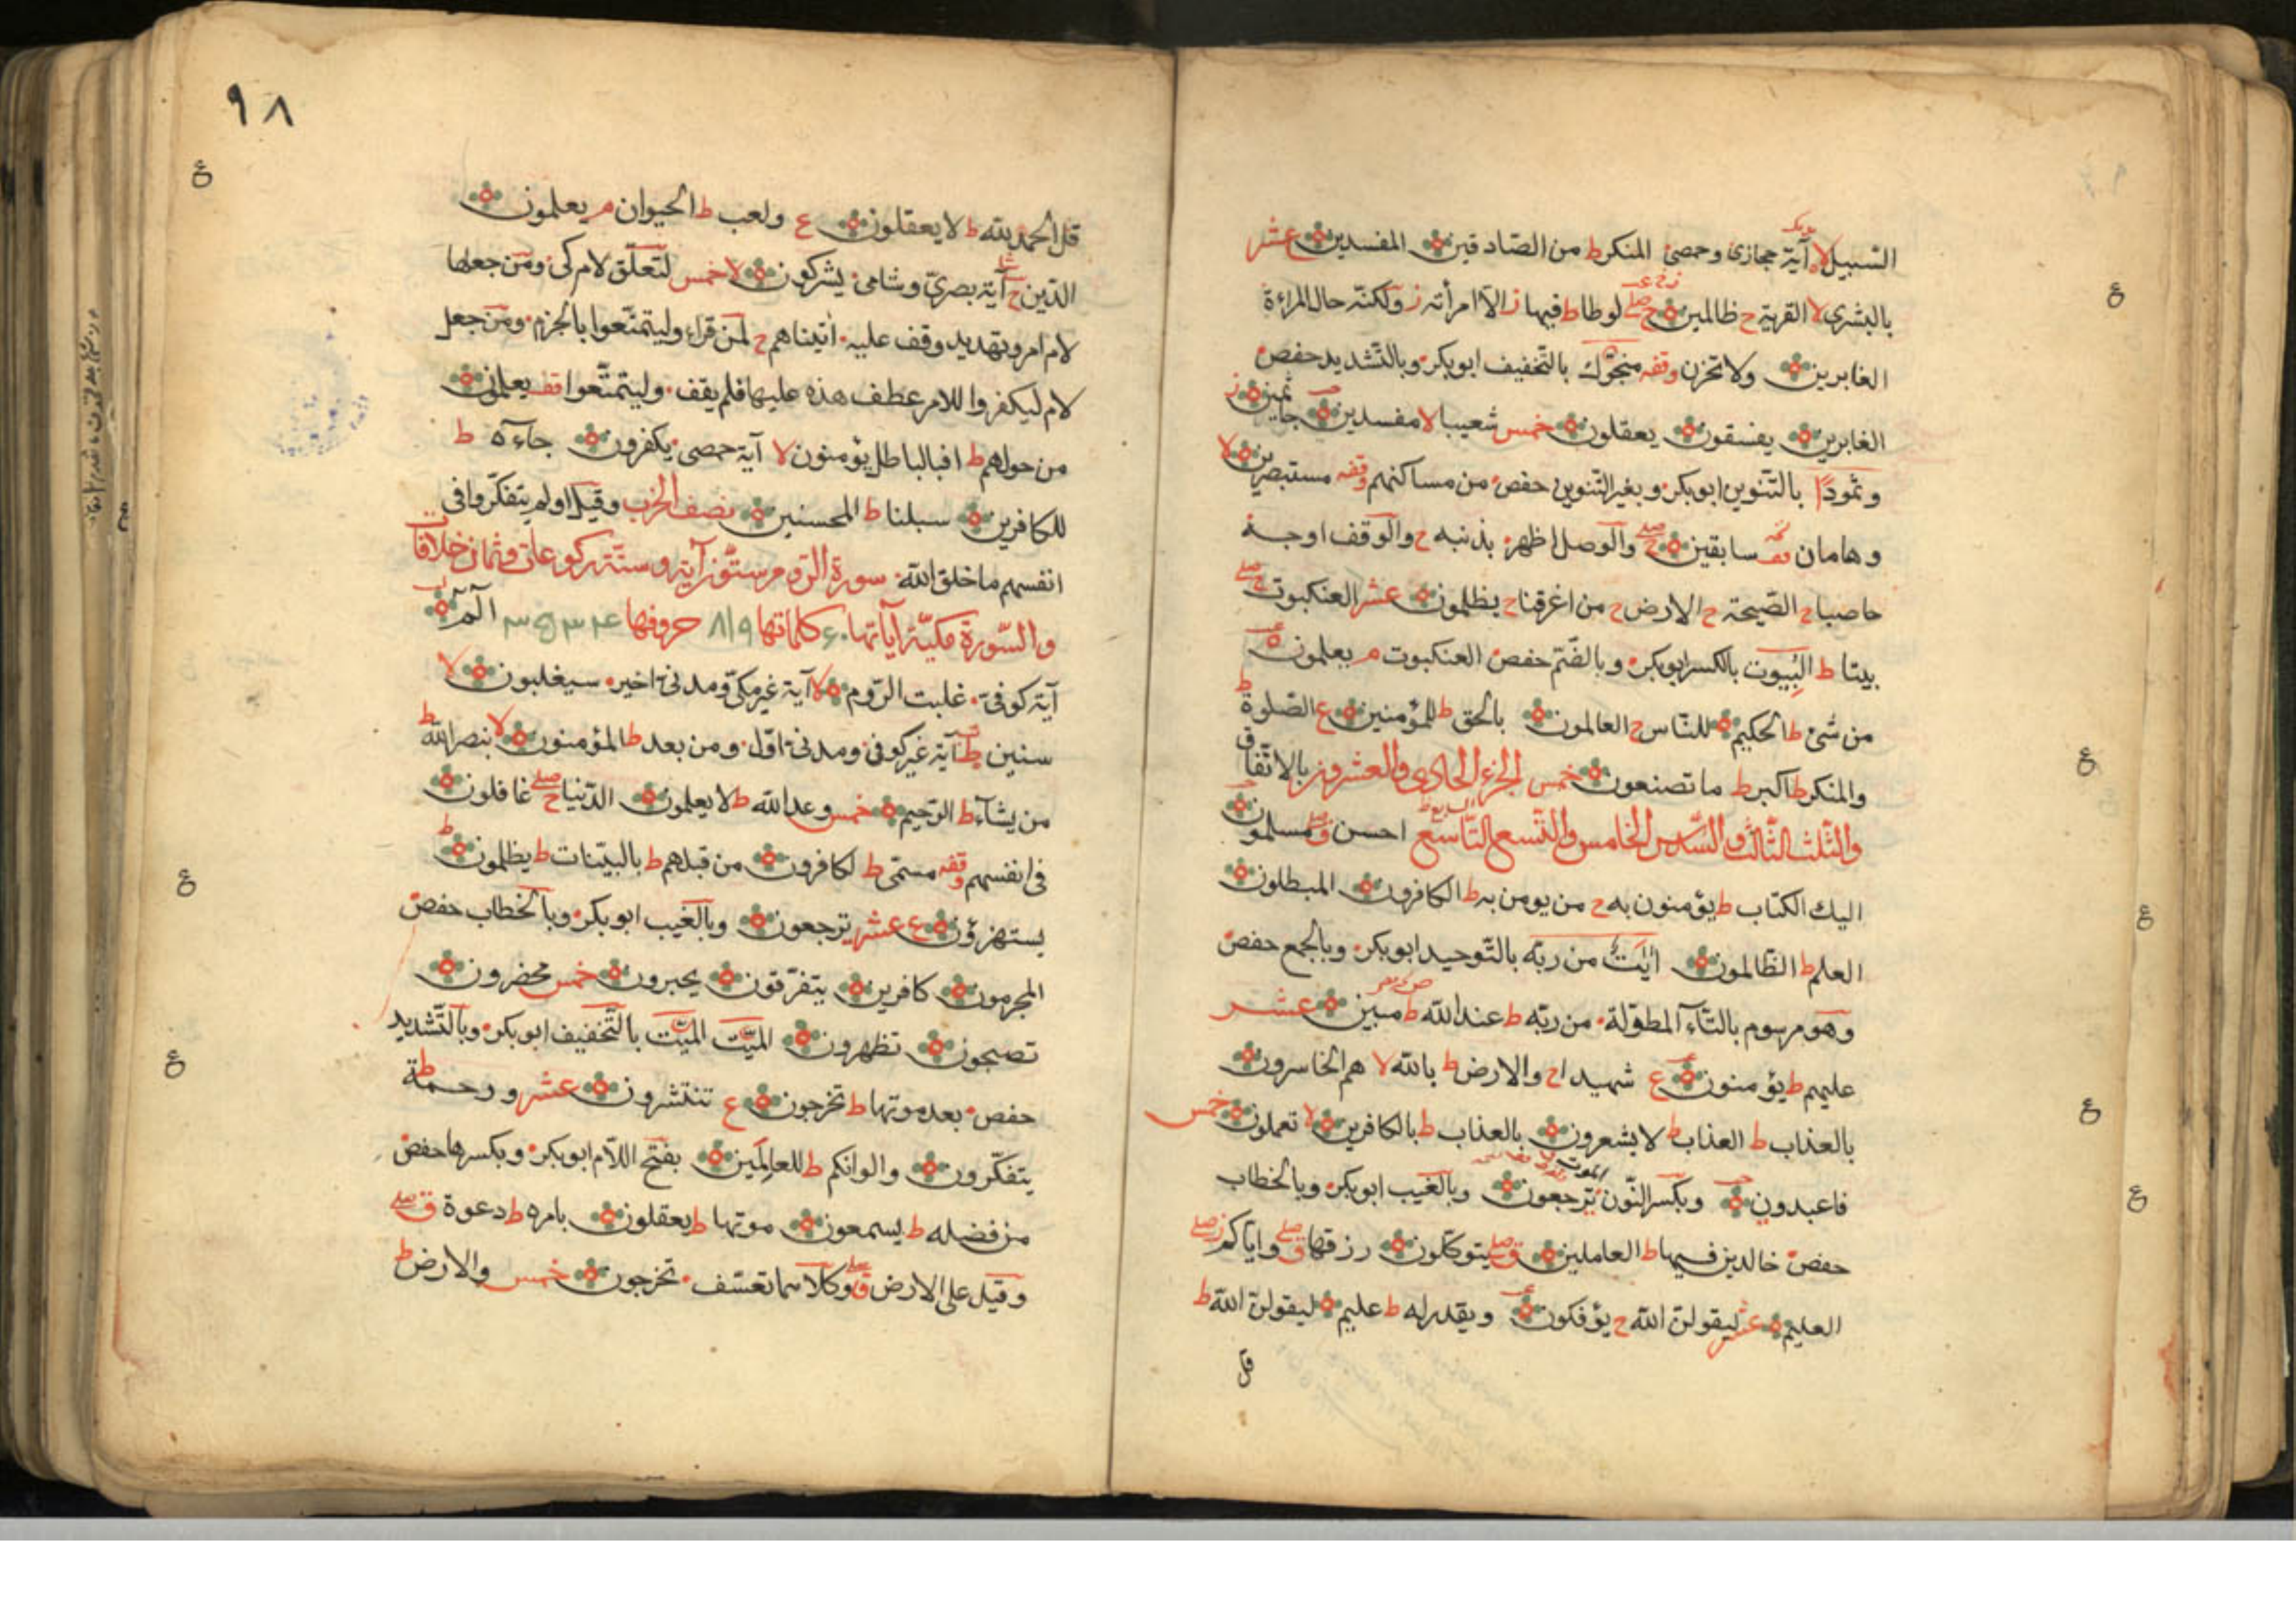 السبيل لا آية حجازى وحمصى المنكر ط من الصادقين المفسدين عشر
بالبشرى لا القرية ح ظالمين ح صلے لوطا ط فيها ز الا امرأته ز ولكنه حال المراءة
الغابرين ولا تحزن وقفه منجوك بالتخفيف ابو بكر وبالتشديد حفص
الغابرين يفسقون يعقلون خمس شعيبا لا مفسدين جاثمين ز
وثمودا بالتنوين ابو بكر وبغير التنوين حفص من مساكنهم وقفه مستبصرين لا
وهامان قف سابقين ح صلے والوصل اظهر بذنبه ح والوقف اوجه
حاصبا ح الصيحة ح الارض ح من اغرقنا ح يظلمون عشر العنكبوت ج صلے
بيتا ط البيوت بالكسر ابو بكر وبالضم حفص العنكبوت م يعلمون
من شئ ط الحكيم للناس ح العالمون بالحق ط للمؤمنين ع الصلوة ط
والمنكر ط اكبر ط ما تصنعون خمس الجزء الحادى والعشرون بالاتفاق
والثلث الثالث والسدس الخامس والتسع التاسع احسن ق صلے مسلمون
اليك الكتاب ط يؤمنون به ح من يومن به ط الكافرون المبطلون
العلم ط الظالمون ايت من ربه بالتوحيد ابو بكر وبالجمع حفص
وهو مرسوم بالتاء المطولة من ربه ط عند الله ط مبين عشر
عليهم ط يؤمنون ع شهيدا ح والارض ط بالله لا هم الخاسرون
بالعذاب ط العذاب ط لا يشعرون بالعذاب ط بالكافرين لا تعملون خمس
فاعبدون وبكسر النون الموت ترجعون وبالغيب ابو بكر وبالخطاب
حفص خالدين فيها ط العاملين ق صلے يتوكلون رزقها ق صلے واياكم ز صلے
العليم عشر ليقولن الله ح يؤفكون ويقدر له ط عليم ليقولن الله ط
قل
٩٨
قل الحمد لله ط لا يعقلون ع ولعب ط الحيوان م يعلمون
الدين ح آية بصرى وشامى يشركون لا خمس لتعلق لام كى ومن جعلها
لام امر وتهديد وقف عليه اتيناهم ح لمن قراء وليتمتعوا بالجزم ومن جعل
لام ليكفروا للامر عطف هذه عليها فلم يقف وليتمتعوا قف يعلمون
من حولهم ط افبالباطل يؤمنون لا آية حمصى يكفرون جاءه ط
للكافرين سبلنا ط المحسنين نصف الحزب وقيل اولم يتفكروا فى
انفسهم ما خلق الله سورة الروم ستون آية وستة ركوعات وثمان خلافات
والسورة مكية آياتها ٦٠ كلماتها ٨١٩ حروفها ٣٥٣٤ الم
آية كوفى غلبت الروم لا آية غير مكى ومدنى اخير سيغلبون لا
سنين ط آية غير كوفى ومدنى اول ومن بعد ط المؤمنون لا بنصر الله ط
من يشاء ط الرحيم خمس وعد الله ط لا يعلمون الدنيا ح صلے غافلون
فى انفسهم وقفه مسمى ط لكافرون من قبلهم ط بالبينات ط يظلمون ط
يستهزؤن ع عشر ترجعون وبالغيب ابو بكر وبالخطاب حفص
المجرمون كافرين يتفرقون يحبرون خمس محضرون
تصبحون تظهرون الميت الميت بالتخفيف ابو بكر وبالتشديد
حفص بعد موتها ط تخرجون ع تنتشرون عشر ورحمة ط
يتفكرون والوانكم ط للعالمين بفتح اللام ابو بكر وبكسرها حفص
من فضله ط يسمعون موتها ط يعقلون بامره ط دعوة ق صلے
وقيل على الارض ق صلے وكلاهما تعسف تخرجون خمس والارض ط